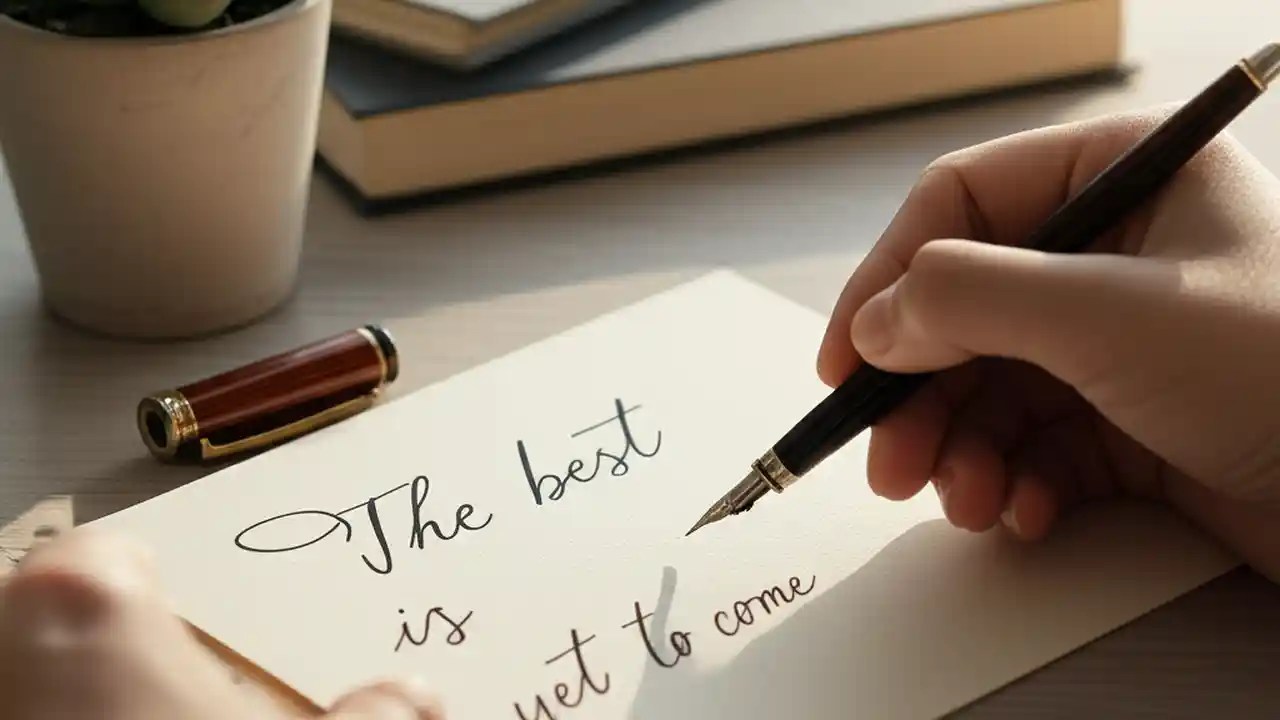 The best
is
yet to come